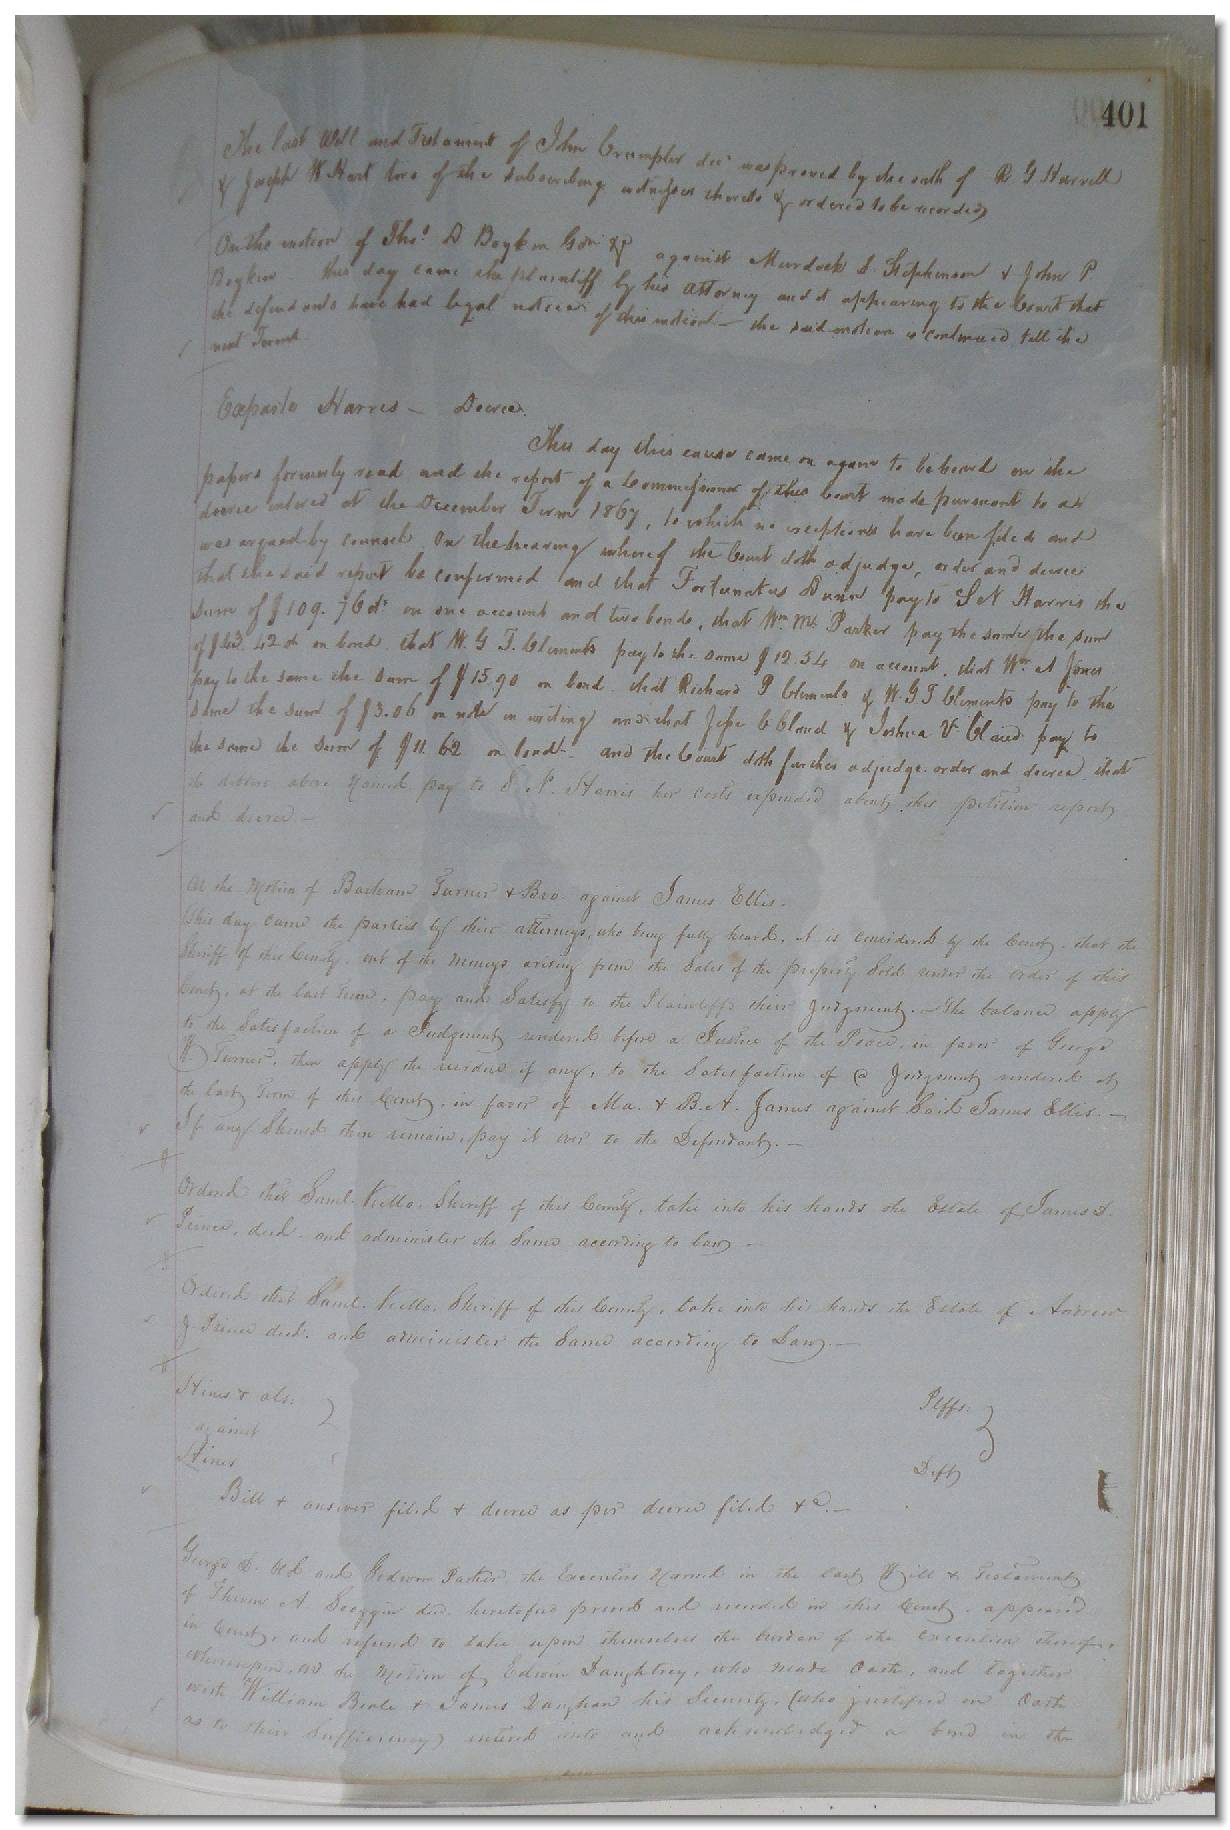 401
The last Will and Testament of John Crumpler decd was proved by the oath of R G Harrell
& Joseph W Hart two of the subscribing witnesses thereto & ordered to be recorded
On the motion of Thos. D Boykin Gdn &c against Murdock S. Stephenson & John P
Boykin this day came the plaintiff by his attorney and it appearing to the Court that
the defendants have had legal notice of this motion - the said motion is continued till the
next Term.
Exparte Harris - Decree.
This day this cause came on again to be heard on the
papers formerly read and the report of a Commissioner of this Court made pursuant to a
decree entered at the December Term 1867, to which no exceptions have been filed and
was argued by counsel. On the hearing whereof the Court doth adjudge, order and decree
that the said report be confirmed and that Fortunatus Dunn pay to S N Harris the
sum of $109.76 cts on one account and two bonds, that Wm. M. Parker pay the same the sum
of $43.42 cts on bond. that W. G. T. Clements pay to the same $12.54 on account, that Wm. A Jones
pay to the same the sum of $15.90 on bond. that Richard P Clements & W.G.T Clements pay to the
same the sum of $3.06 on note in writing and that Jesse C Claud & Joshua V Claud pay to
the same the sum of $11.62 on bond - and the Court doth further adjudge order and decree that
the debtors above named pay to S. N. Harris her costs expended about this petition report
and decree. -
On the Motion of Barham Turner & Bro. against James Ellis.
This day came the parties by their attorneys, who being fully heard, it is considered by the Court, that the
Sheriff of this County, out of the Moneys arising from the Sales of the property Sold under the order of this
Court, at the last Term, pay and Satisfy to the Plaintiffs their Judgment. - The balance apply
to the Satisfaction of a Judgment rendered before a Justice of the Peace, in favor of George
W. Turner, then apply the residue if any, to the Satisfaction of a Judgment rendered at
the last Term of this Court, in favor of & B.A. James against Said James Ellis. -
If any Should then remain, pay it over to the Defendant. -
Ordered that Saml. Kello, Sheriff of this County, take into his hands the Estate of James D.
Prince, decd. and administer the Same according to law -
Ordered that Saml. Kello, Sheriff of this County, take into his hands the Estate of Andrew
J. Prince decd. and administer the Same according to Law. -
Hines & als. Plffs.
against
Hines Deft
Bill & answer filed & decree as per decree filed &c. -
George and Parker, the Executors Named in the last Will & Testament
of A. Scoggin decd. heretofore proved and recorded in this Court, appeared
in Court, and refused to take upon themselves the burden of the execution thereof,
whereupon, on the Motion of Edwin Daughtrey, who made Oath, and together
with William Beale & James Vaughan his Security, (who justified on Oath
as to their Sufficiency) entered into and acknowledged a bond in the